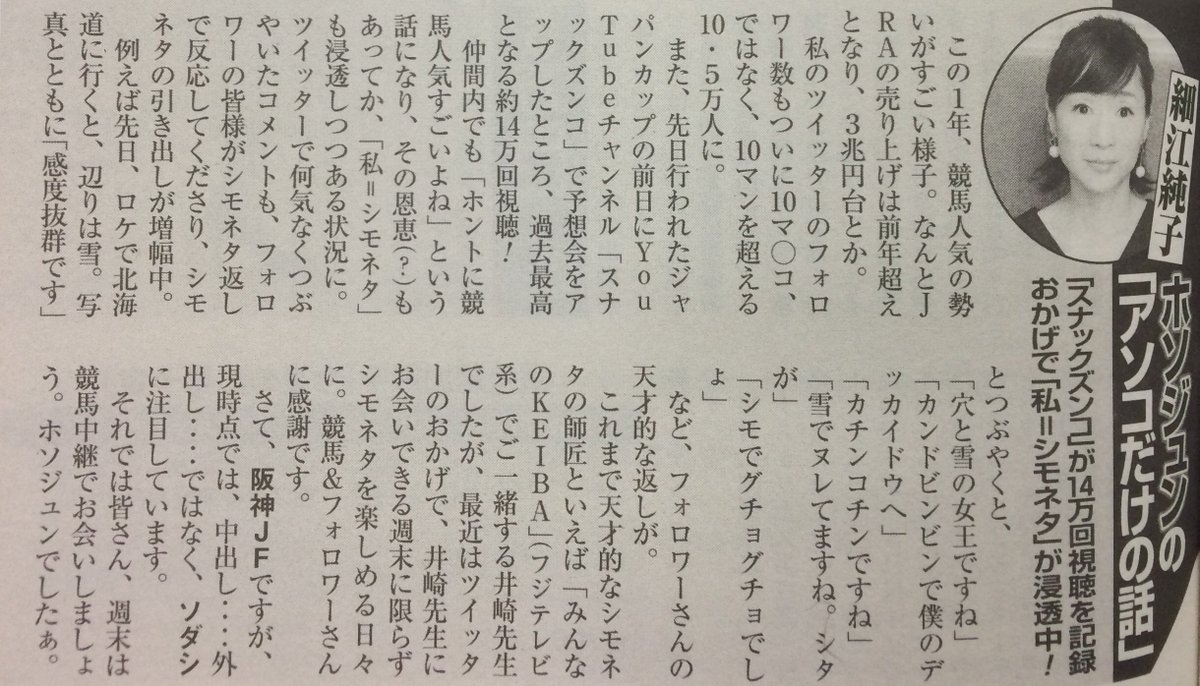 細江純子
ホソジュンの
「アソコだけの話」
「スナックズンコ」が14万回視聴を記録
おかげで「私＝シモネタ」が浸透中！
この１年、競馬人気の勢
いがすごい様子。なんとＪ
ＲＡの売り上げは前年超え
となり、３兆円台とか。
私のツイッターのフォロ
ワー数もついに10マ〇コ、
ではなく、10マンを超える
10・５万人に。
また、先日行われたジャ
パンカップの前日にＹｏｕ
Ｔｕｂｅチャンネル「スナ
ックズンコ」で予想会をア
ップしたところ、過去最高
となる約14万回視聴！
仲間内でも「ホントに競
馬人気すごいよね」という
話になり、その恩恵（？）も
あってか、「私＝シモネタ」
も浸透しつつある状況に。
ツイッターで何気なくつぶ
やいたコメントも、フォロ
ワーの皆様がシモネタ返し
で反応してくださり、シモ
ネタの引き出しが増幅中。
例えば先日、ロケで北海
道に行くと、辺りは雪。写
真とともに「感度抜群です」
とつぶやくと、
「穴と雪の女王ですね」
「カンドビンビンで僕のデ
ッカイドウへ」
「カチンコチンですね」
「雪でヌレてますね。シタ
が」
「シモでグチョグチョでし
ょ」
など、フォロワーさんの
天才的な返しが。
これまで天才的なシモネ
タの師匠といえば「みんな
のＫＥＩＢＡ」（フジテレビ
系）でご一緒する井崎先生
でしたが、最近はツイッタ
ーのおかげで、井崎先生に
お会いできる週末に限らず
シモネタを楽しめる日々
に。競馬＆フォロワーさん
に感謝です。
さて、阪神ＪＦですが、
現時点では、中出し‥‥外
出し‥‥ではなく、ソダシ
に注目しています。
それでは皆さん、週末は
競馬中継でお会いしましょ
う。ホソジュンでしたぁ。